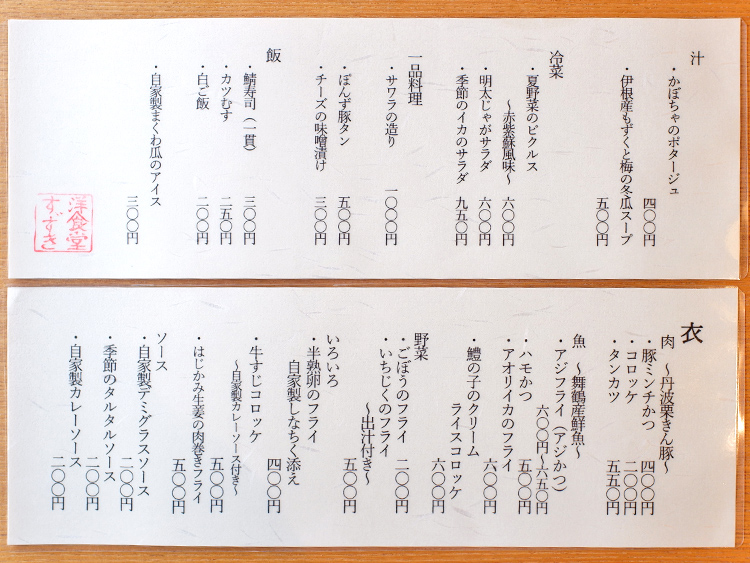 汁
・かぼちゃのポタージュ
四〇〇円
・伊根産もずくと梅の冬瓜スープ
五〇〇円
冷菜
・夏野菜のピクルス
～赤紫蘇風味～
六〇〇円
・明太じゃがサラダ
六〇〇円
・季節のイカのサラダ
九五〇円
一品料理
・サワラの造り
一〇〇〇円
・ぽんず豚タン
五〇〇円
・チーズの味噌漬け
三〇〇円
飯
・鯖寿司（一貫）
三〇〇円
・カツむす
二五〇円
・白ご飯
二〇〇円
・自家製まくわ瓜のアイス
三〇〇円
洋食堂
すずき
衣
肉　～丹波栗きん豚～
・豚ミンチかつ　四〇〇円
・コロッケ　二〇〇円
・タンカツ　五五〇円
魚　～舞鶴産鮮魚～
・アジフライ（アジかつ）
六〇〇円～六五〇円
・ハモかつ　五〇〇円
・アオリイカのフライ
六〇〇円
・鱧の子のクリーム
ライスコロッケ
六〇〇円
野菜
・ごぼうのフライ　二〇〇円
・いちじくのフライ
～出汁付き～
五〇〇円
いろいろ
・半熟卵のフライ
自家製しなちく添え
四〇〇円
・牛すじコロッケ
～自家製カレーソース付き～
五〇〇円
・はじかみ生姜の肉巻きフライ
五〇〇円
ソース
・自家製デミグラスソース
二〇〇円
・季節のタルタルソース
二〇〇円
・自家製カレーソース
二〇〇円